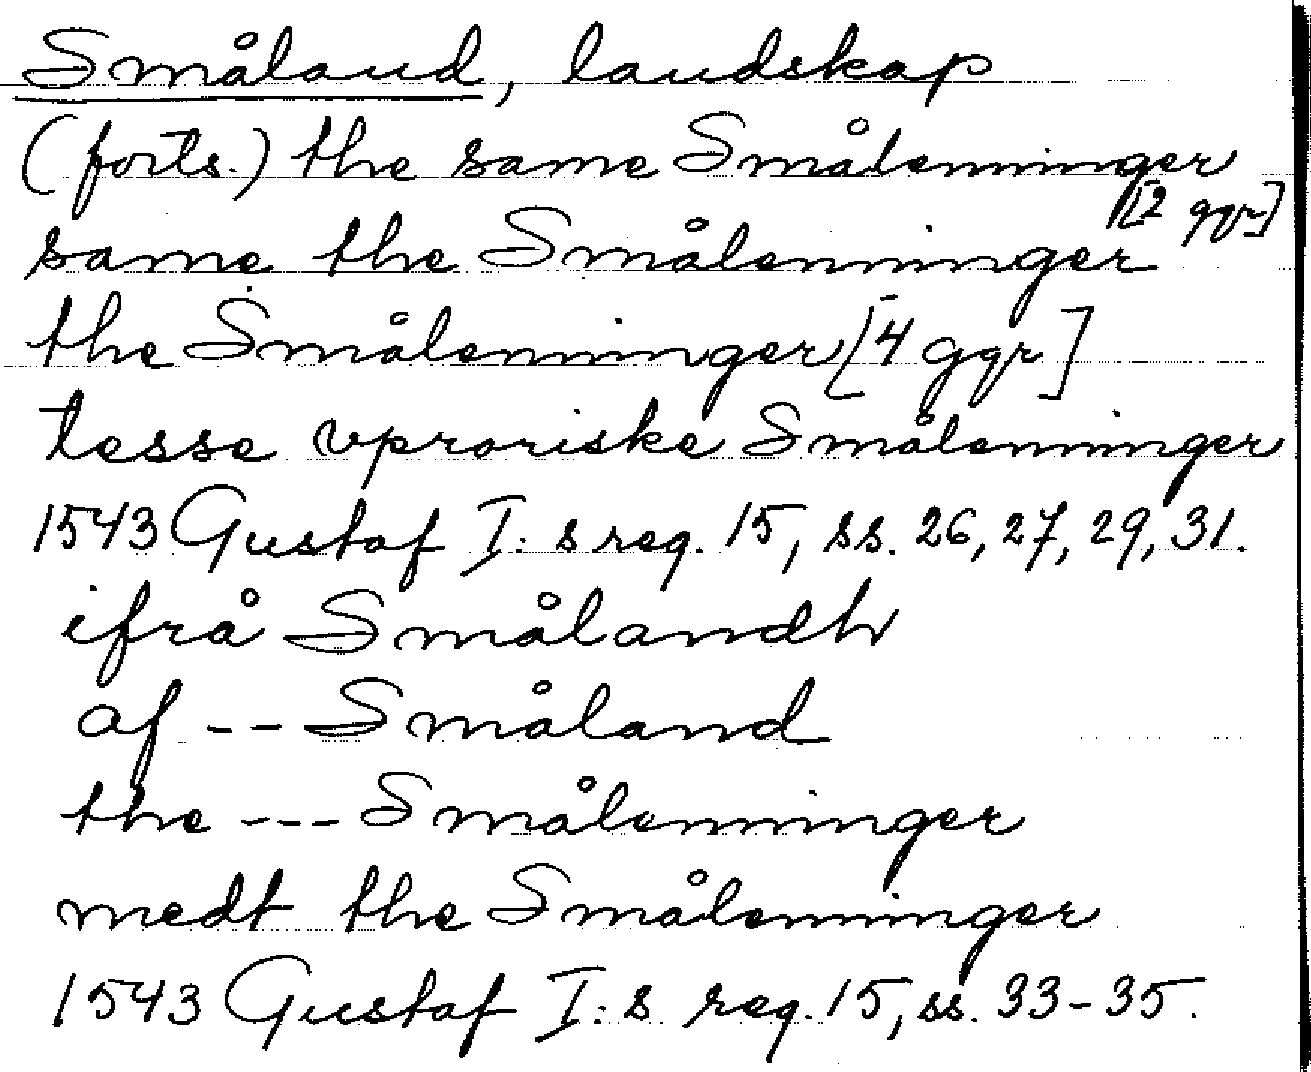 Småland, landskap
(forts.) the same Smålenninger
[2 ggr]
same the Smålenninger
the Smålenninger [4 ggr]
tesse vproriske Smålenninger
1543 Gustaf I:s reg. 15, ss. 26, 27, 29, 31.
ifrå Smålandh
af -- Småland
the --- Smålenninger
medt the Smålenninger
1543 Gustaf I:s reg. 15, ss. 33-35.